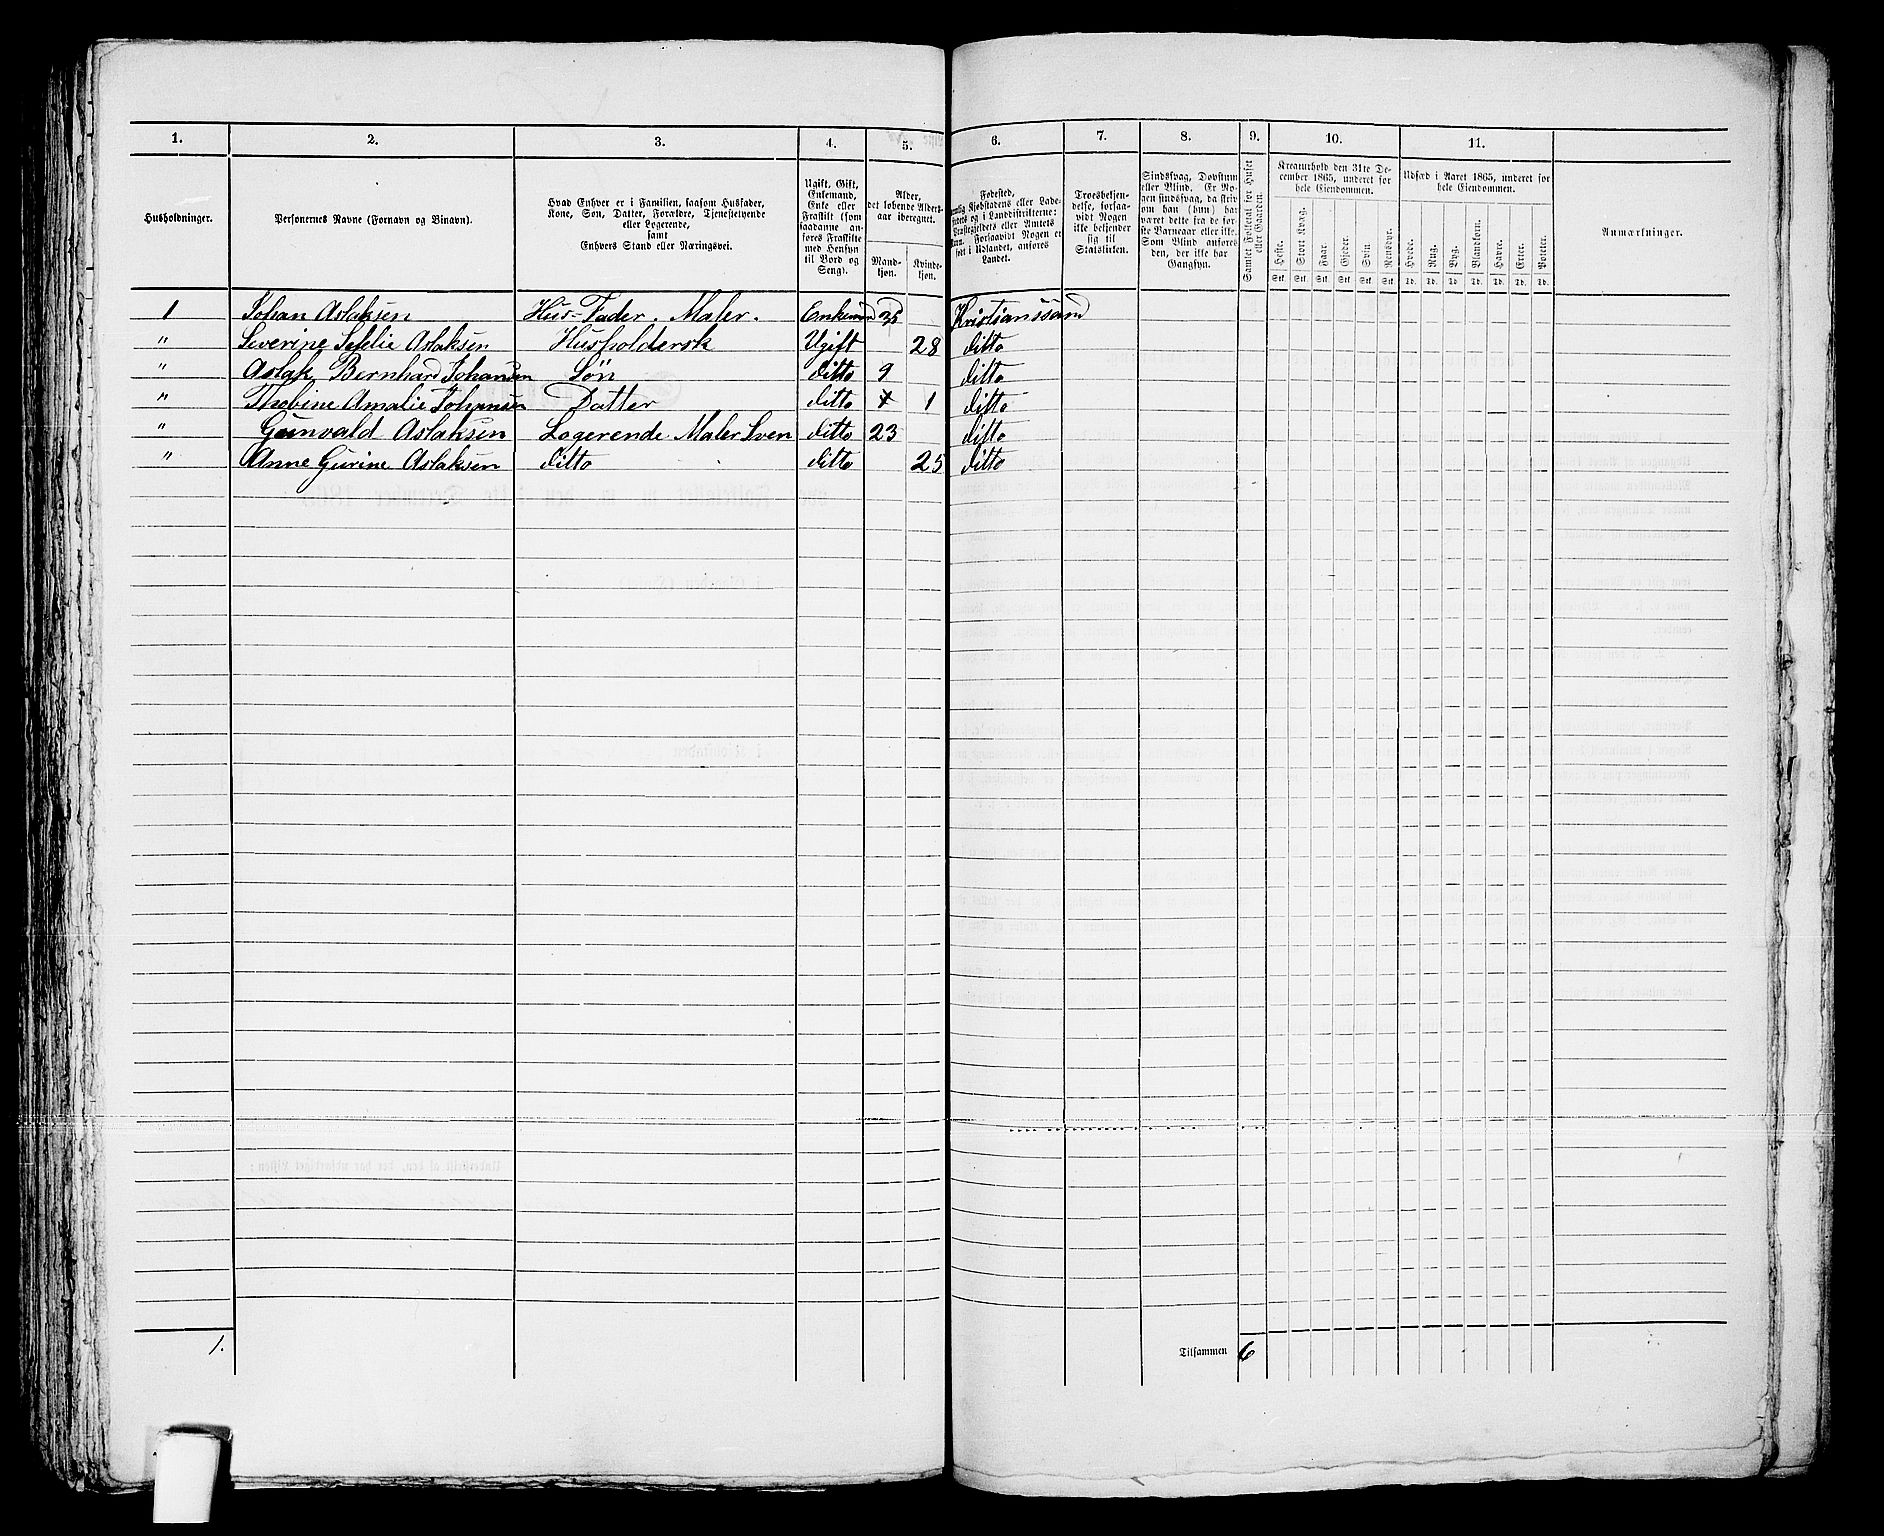 1. 2. 3. 4. 5. 6. 7. 8. 9. 10. 11.
Husholdninger.
Personernes Navne (Fornavn og Binavn).
Hvad Enhver er i Familien, saasom Husfader,
Kone, Søn, Datter, Forældre, Tjenestetyende
eller Logerende,
samt
Enhvers Stand eller Næringsvei.
Ugift, Gift,
Enkemand,
Enke eller
Fraskilt (som
saadanne an-
føres Fraskilte
med Hensyn
til Bord og
Seng).
Alder,
det løbende Alders-
aar iberegnet.
Mand-
kjøn.
Kvinde-
kjøn.
Fødested,
nemlig Kjøbstadens eller Lade-
stedets og i Landdistrikterne:
Præstegjeldets eller Amtets
Navn. Forsaavidt Nogen er
født i Udlandet, anføres
Landet.
Troesbekjen-
delse, forsaa-
vidt Nogen
ikke bekjender
sig til
Statskirken.
Sindssvag, Døvstum
eller Blind. Er No-
gen sindssvag, da skriv
om han (hun) har
været dette fra de før-
ste Barneaar eller ikke.
Som Blind anføres
den, der ikke har
Gangsyn.
Samlet Folketal for Huset
eller Gaarden.
Kreaturhold den 31te De-
cember 1865, underet for
hele Eiendommen.
Heste. Stort Kvæg. Faar. Gjeder. Svin. Rensdyr.
Stk. Stk. Stk. Stk. Stk. Stk.
Udsæd i Aaret 1865, underet for
hele Eiendommen.
Hvede. Rug. Byg. Blandkorn. Havre. Erter. Poteter.
Td. Td. Td. Td. Td. Td. Td.
Anmærkninger.
1 Johan Aslaksen Hus-Fader. Maler. Enkemand 35 Kristianssand
" Severine Aslaksen Husholdersk Ugift 28 ditto
" Aslak Bernhard Johansen Søn ditto 9 ditto
" Thobine Amalie Johansen Datter ditto 1 ditto
" Gunvald Aslaksen Logerende Maler Sven ditto 23 ditto
" Anne Gurine Aslaksen ditto ditto 25 ditto
1. Tilsammen 6